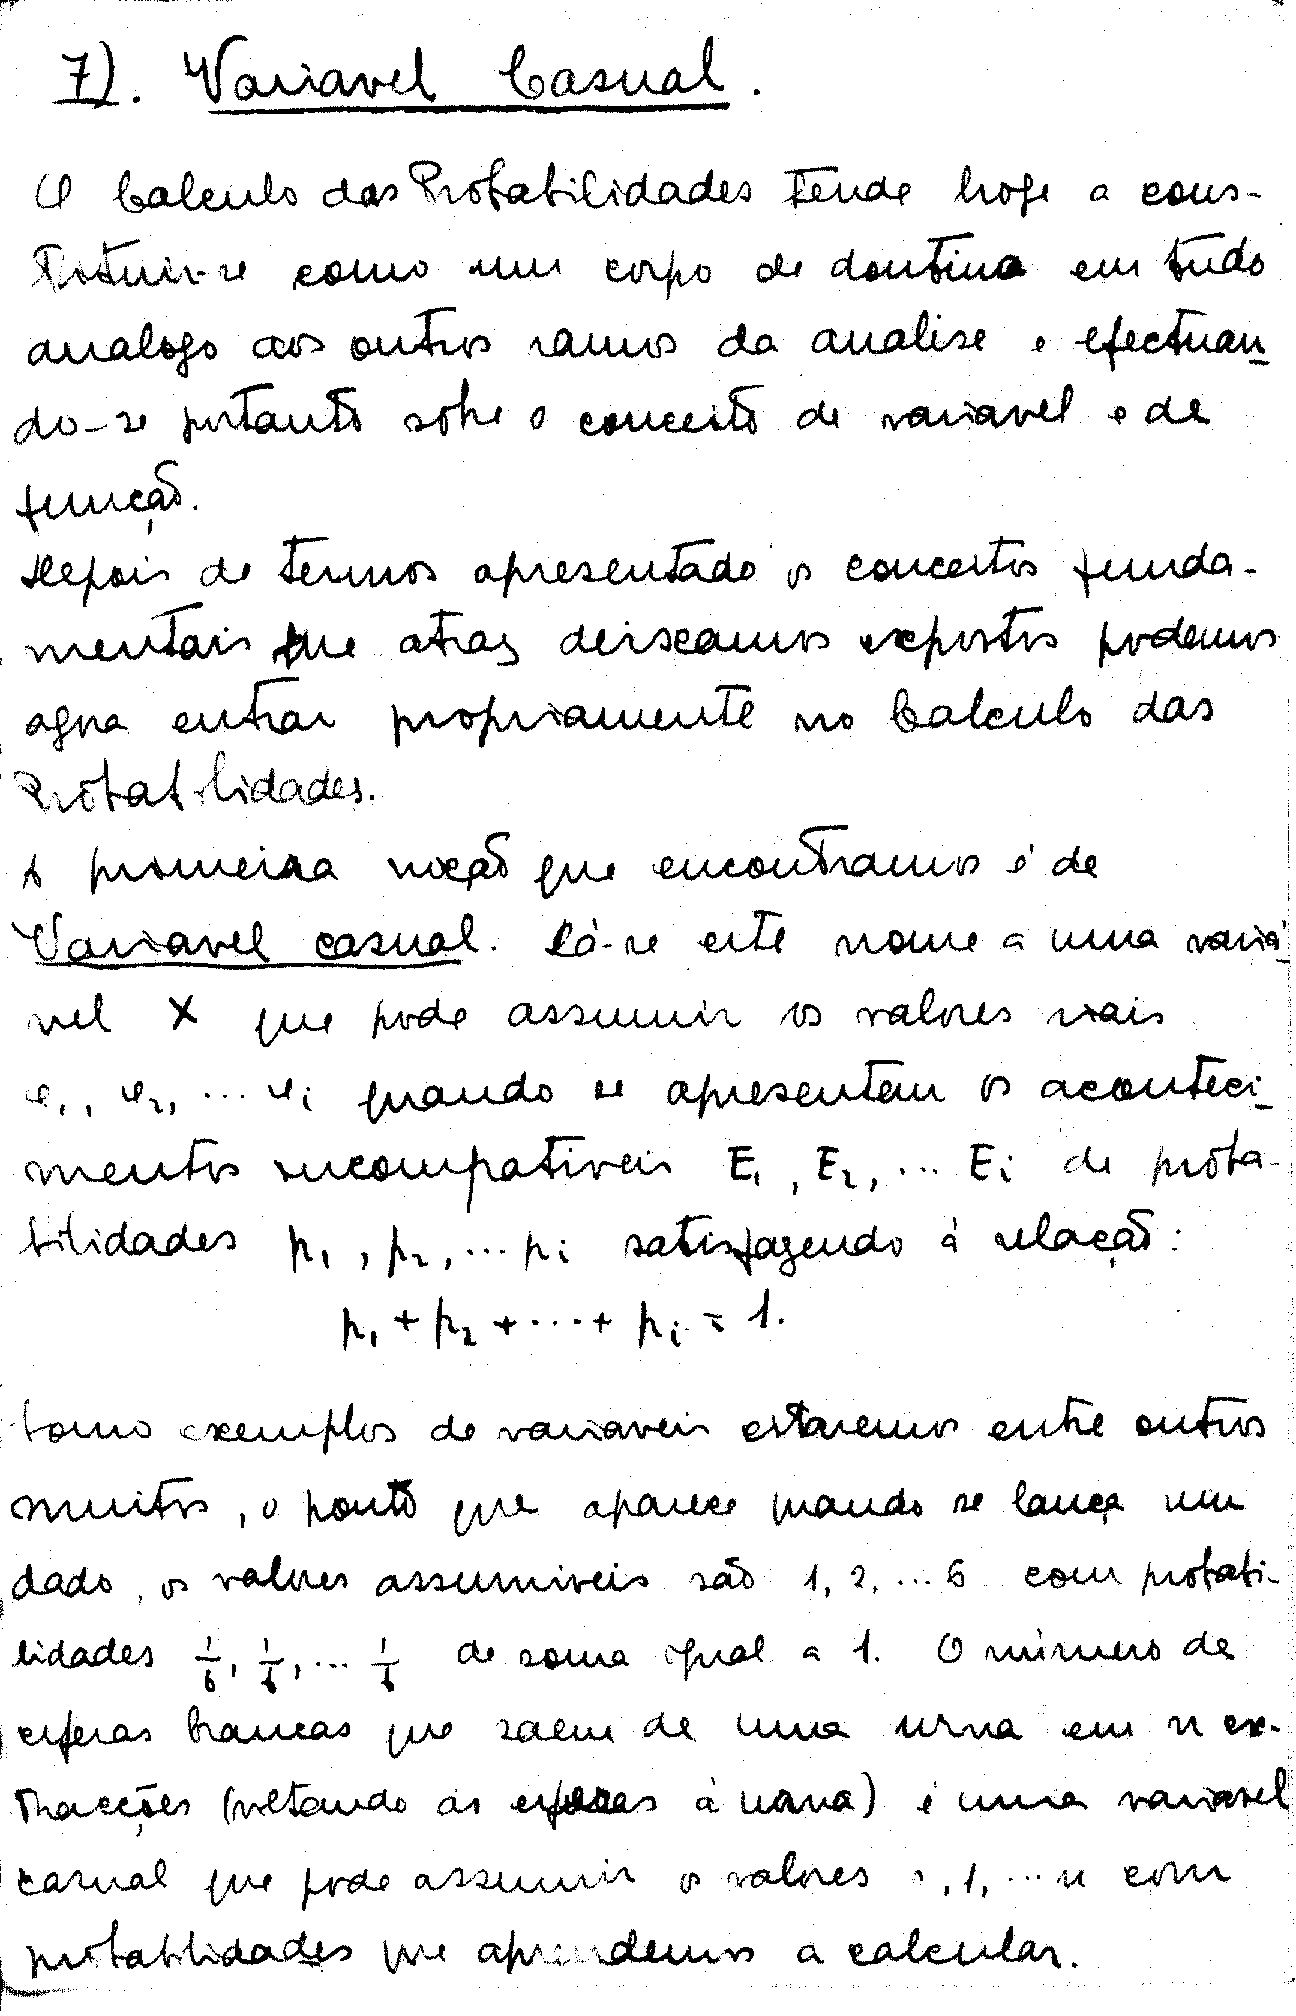 7). Variavel Casual.
O Calculo das Probabilidades tende hoje a cons-
tituir-se como um corpo de doutrina em tudo
analogo aos outros ramos da analise e efectuan-
do-se portanto sôbre o conceito de variavel e de
função.
Depois de termos apresentado os conceitos funda-
mentais que atraz deixamos expostos podemos
agora entrar propriamente no Calculo das
Probabilidades.
A primeira noção que encontramos é de
Variavel casual. Dá-se este nome a uma variá-
vel X que pode assumir os valores reais
x₁, x₂, ... xᵢ quando se apresentem os aconteci-
mentos incompativeis E₁, E₂, ... Eᵢ de proba-
bilidades p₁, p₂, ... pᵢ satisfazendo á relação:
p₁ + p₂ + ... + pᵢ = 1.
Como exemplos de variaveis estaremos entre outros
muitos, o ponto que aparece quando se lança um
dado, os valores assumiveis são 1, 2, ... 6 com probabi-
lidades 1/6, 1/6, ... 1/6 de soma igual a 1. O número de
esferas brancas que saem de uma urna em n ex-
tracções (voltando as esferas á urna) é uma variavel
casual que pode assumir os valores 0, 1, ... n com
probabilidades que aprendemos a calcular.